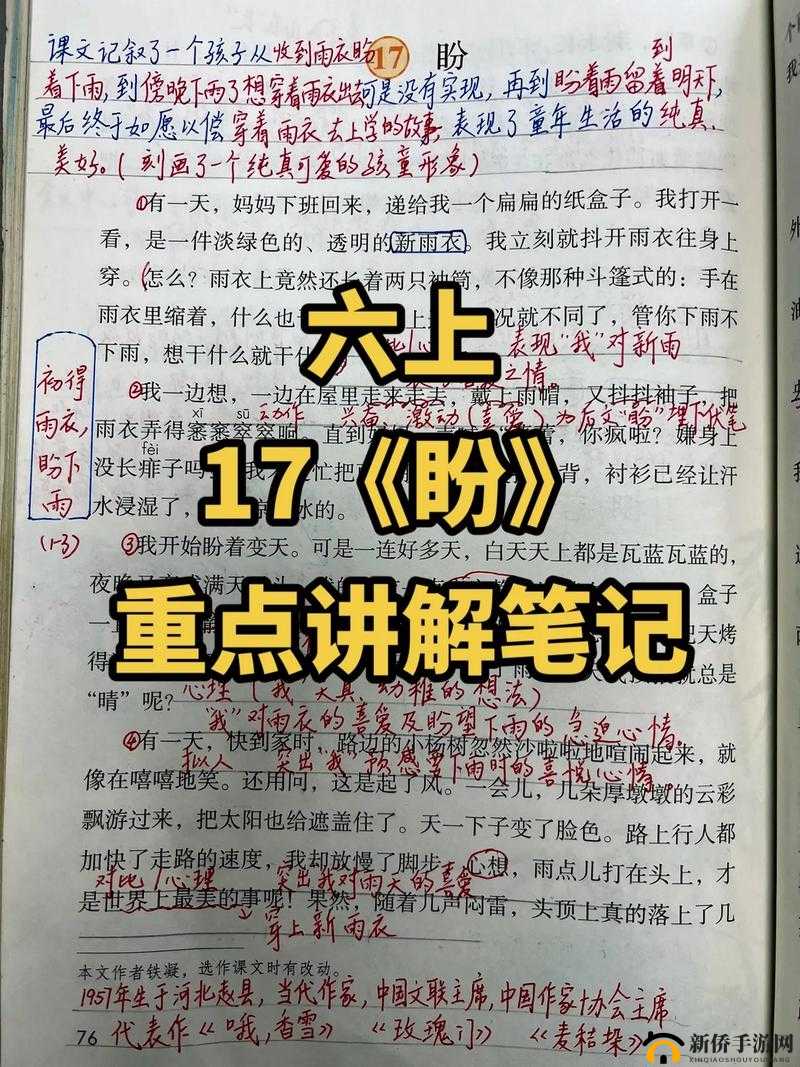 课文记叙了一个孩子从收到雨衣盼 17 盼 到
着下雨,到傍晚下雨了想穿着雨衣出去可是没有实现,再到盼着雨留着明天下,
最后终于如愿以偿穿着雨衣去上学的故事,表现了童年生活的纯真、
美好。(刻画了一个纯真可爱的孩童形象)
①有一天,妈妈下班回来,递给我一个扁扁的纸盒子。我打开一
看,是一件淡绿色的、透明的新雨衣。我立刻就抖开雨衣往身上
穿。怎么?雨衣上竟然还长着两只袖筒,不像那种斗篷式的:手在
雨衣里缩着,什么也 上 况就不同了,管你下雨不
下雨,想干什么就干什
六上
表现“我”对新雨
之情。
初得
雨衣,
盼下
雨
(1-3)
②我一边想,一边在屋里走来走去,戴上雨帽,又抖抖袖子,把
xī sū 动作 兴奋 激动(喜爱)为后文“盼”埋下伏笔
雨衣弄得窸窸窣窣响。直到 着,你疯啦?嫌身上
fèi
没长痱子吗 我 忙把 背,衬衫已经让汗
水浸湿了, 水的。
17《盼》
③我开始盼着变天。可是一连好多天,白天天上都是瓦蓝瓦蓝的,
夜晚又 满天 盒子
一 把天烤
得 就总是
重点讲解笔记
“晴”呢?心理(“我”天真、幼稚的想法)
“我”对雨衣的喜爱及盼望下雨的急迫心情。
④有一天,快到家时,路边的小杨树忽然沙啦啦地喧闹起来,就
拟人 突出“我”预感要下雨时的喜悦心情。
像在嘻嘻地笑。还用问,这是起了风。一会儿,几朵厚墩墩的云彩
飘游过来,把太阳也给遮盖住了。天一下子变了脸色。路上行人都
加快了走路的速度,我却放慢了脚步,心想,雨点儿打在头上,才
对比/心理 突出我对雨天的喜爱
是世界上最美的事呢!果然,随着几声闷雷,头顶上真的落上了几
穿上新雨衣
本文作者铁凝,选作课文时有改动。
1957年生于河北赵县,当代作家,中国文联主席,中国作家协会主席
76 代表作《哦,香雪》《玫瑰门》《麦秸垛》
新侨手游网
XINQIAOSHOUYOUWANG